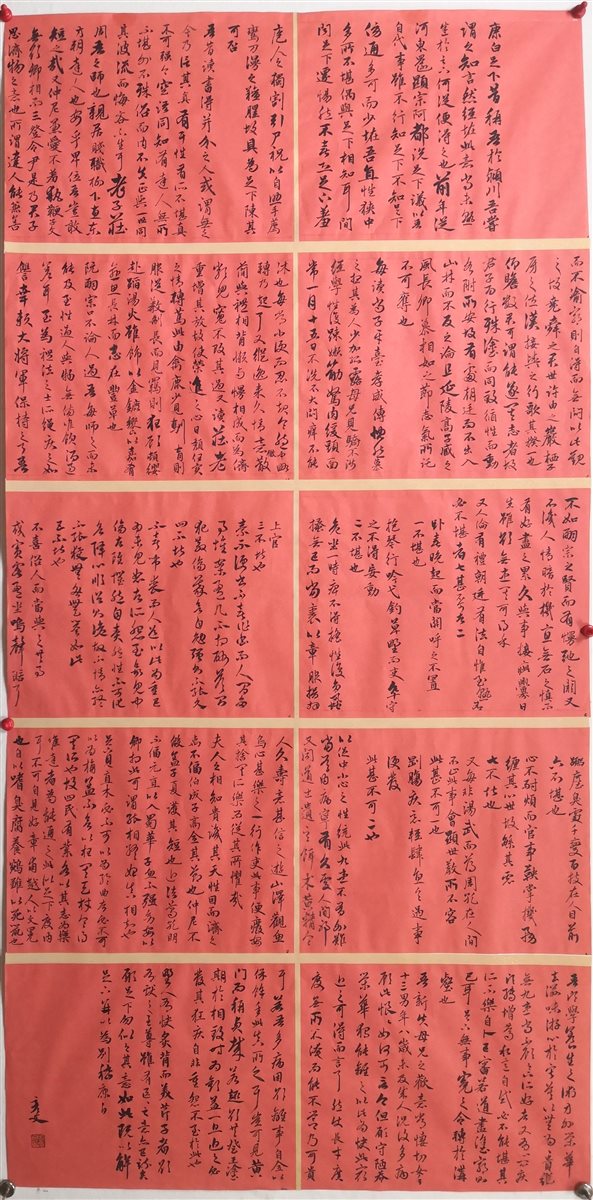 康白足下昔稱吾於潁川吾嘗
謂之知言然經怪此意尚未熟
悉於足下何從便得之也前年從
河東還顯宗阿都說足下議以吾
自代事雖不行知足下不知之足下
傍通多可而少怪吾直性狹中
多所不堪偶與足下相知耳間
聞足下遷惕然不喜恐足下羞
庖人之獨割引尸祝以自助手薦
鸞刀漫之羶腥故具為足下陳其
可否
吾昔讀書得并介之人或謂無之
今乃信其真有耳性有所不堪真
不可強今空語同知有達人無所
不堪外不殊俗而內不失正與一世同
其波流而悔吝不生耳老子莊
周吾之師也親居賤職柳下惠東
方朔達人也安乎卑位吾豈敢
短之哉又仲尼兼愛不羞執鞭子文
無欲卿相而三登令尹是乃君子
思濟物之意也所謂達人能兼善
而不渝窮則自得而無悶以此觀
之故堯舜之君世許由之巖棲子
房之佐漢接輿之行歌其揆一也
仰瞻數君可謂能遂其志者也故
君子百行殊塗而同致循性而動
各附所安故有處朝廷而不出入
山林而不反之論且延陵高子臧之
風長卿慕相如之節志氣所託
不可奪也
每讀尚子平臺孝威傳慨然慕
之想其為人少加孤露母兄見驕不涉
經學性復疏嬾筋駑肉緩頭面
常一月十五日不洗不大悶癢不能
沐也每常小便而忍不起令胞中略
轉乃起耳又縱逸來久情意傲散
簡與禮相背嬾與慢相成而為儕
類見寬不攻其過又讀莊老
重增其放故使榮進之心日頹任實
之情轉篤此由禽鹿少見馴育則
服從教制長而見羈則狂顧頓纓
赴蹈湯火雖飾以金鑣饗以嘉肴
愈思長林而志在豐草也
阮嗣宗口不論人過吾每師之而未
能及至性過人與物無傷唯飲酒過
差耳至為禮法之士所繩疾之如
讎幸賴大將軍保持之耳吾
不如嗣宗之賢而有慢弛之闕又
不識人情闇於機宜無石之慎而
有好盡之累久與事接疵釁日
生雖欲無患其可得乎
又人倫有禮朝廷有法自惟至熟有
必不堪者七甚不可者二
卧喜晚起而當關呼之不置
一不堪也
抱琴行吟弋釣草野而吏卒守
之不得妄動
二不堪也
危坐一時痺不得搖性復多虱
把搔無已而當裹以章服揖拜
上官
三不堪也
素不便書又不喜作書而人間多
事堆案盈几不相酬答則
犯教傷義欲自勉強則不能久
四不堪也
不喜弔喪而人道以此為重已
為未見恕者所怨至欲見中
傷者雖瞿然自責然性不可化
欲降心順俗則詭故不情亦終
不能獲無咎無譽如此
五不堪也
不喜俗人而當與之共事
或賓客盈坐鳴聲聒耳
囂塵臭處千變百伎在人目前
六不堪也
心不耐煩而官事鞅掌機務
纏其心世故繁其慮
七不堪也
又每非湯武而薄周孔在人間
不止此事會顯世教所不容
此甚不可一也
剛腸疾惡輕肆直言遇事
便發
此甚不可二也
以促中小心之性統此九患不有外難
當有內病寧可久處人間邪
又聞道士遺言餌朮黃精令
人久壽意甚信之遊山澤觀魚
鳥心甚樂之一行作吏此事便廢安能
舍其所樂而從其所懼哉
夫人之相知貴識其天性因而濟之
禹不偪伯成子高全其節也仲尼不
假蓋子夏護其短也近諸葛孔明
不偪元直以入蜀華子魚不強幼安以
卿相此可謂能相終始真相知也
足下見直木必不可以為輪曲者不可
以為桷蓋不欲以枉其天才令得
其所也故四民有業各以得志為樂
唯達者為能通之此足下度內
耳不可自見好章甫強越人以文冕
也己嗜臭腐養鴛雛以死鼠也
吾頃學養生之術方外榮華
去滋味游心於寂寞以無為為貴縱
無九患尚不顧足下所好者又有心悶疾
頃轉增篤私意自試必不能堪其
所不樂自卜已審若道盡途窮則
已耳足下無事冤之令轉於溝
壑也
吾新失母兄之歡意常悽切女年
十三男年八歲未及成人況復多病
顧此悢悢如何可言今但願守陋巷
榮華獨能離之以此為快此最
近之可得而言耳然使長才廣
度無所不淹而能不營乃可貴
耳若吾多病困欲離事自全以
保餘年此真所乏耳豈可見黃
門而稱貞哉若趣欲共登王塗
期於相致時為歡益一旦迫之必
發其狂疾自非重怨不至於此也
野人有快炙背而美芹子者欲
獻之至尊雖有區區之意亦已疏矣
願足下勿似之其意如此既以解
足下并以為別嵇康白